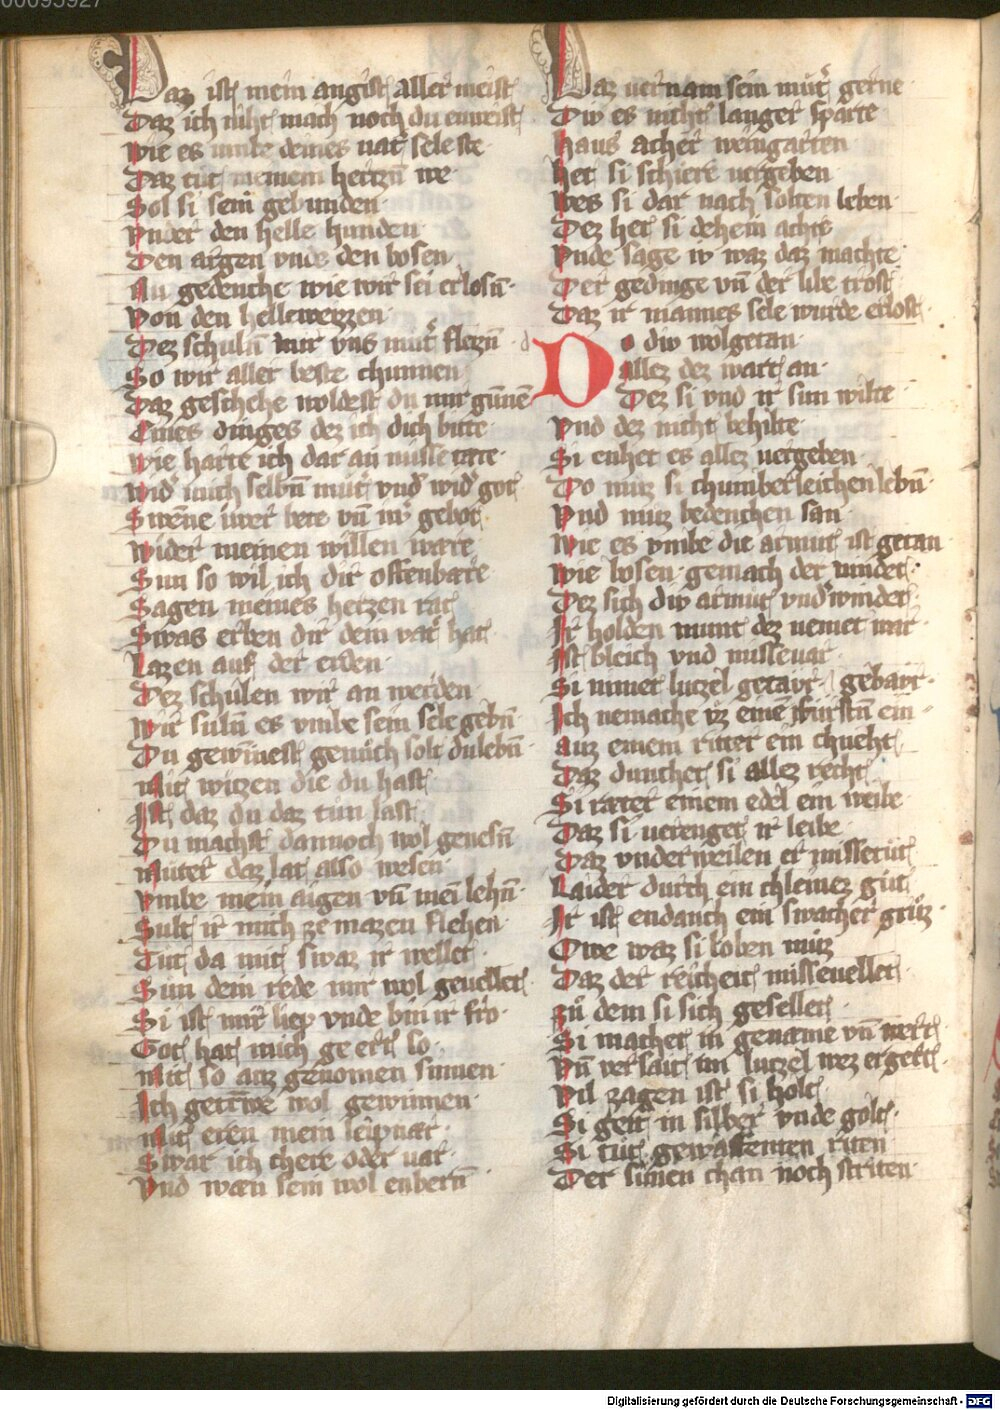 Daz ist mein angist aller meist
Daz ich niht mach noch du enweist
Wie es vmbe deines vat͛ sele ste
Daz tut meinem hertzn̄ we
Sol si sein gebunden
Vnder den helle hunden
Den argen vnde den bosen
Nu gedenche wie wir sei erlosn̄
Von den helleweizzen
Dez schuln̄ wir vns mut͛ flezn̄
So wir aller beste chunnen
Daz geschehe woldest du mir gunnē
Eines dinges dez ich dich bitte
Wie harte ich dar an missetrete
Wid͛ mich selbn̄ mut͛ vnd wid͛ got
Swenne iwer bete vn̄ iw͛ gebot
Wider meinen willen ware
Sun so wil ich dir offenbare
Sagen meines hertzen rat
Swas erben dir dein vat͛ hat
Lazen auf der erden
Dez schulen wir an werden
Wir suln̄ es vmbe sein sele gebn̄
Du gewinnest genuch solt du lebn̄
Mit witzen die du hast
Ist daz du daz tun last
Du machst dannoch wol genesn̄
Muter daz lat also wesen
Vmbe mein aigen vn̄ mei lehn̄
Sult ir mich ze mazen flehen
Tut da mit swaz ir wellet
Sun dein rede mir wol geuellet
Si ist mir liep vnde bin ir fro
Got hat mich geert so
Mit so auz genomen sinnen
Ich getrwe wol gewinnen
Mit eren mein leipnar
Swar ich chere oder uar
Vnd wæn sein wol enbern̄
Daz uernam sein mut͛ gerne
Diw es nicht langer sparte
Haus acher weingarten
Het si schiere uergeben
Wes si dar nach solten leben
Dez het si dehein achte
Vnde sage iv waz daz machte
Der gedinge vn̄ der libe trost
Daz ir mannes sele wurde erlost
d
Do diw wolgetan
allez dez wart an
Dez si vnd ir sun wilte
Vnd dez nicht behilte
Si enhet es allez uergeben
Do muz si chumberleichen lebn̄
Vnd muz bedenchen san
Wie es vmbe die armut ist getan
Wie bosen gemach der vindet
Dez sich diw armut vnd͛windet
Ir holden munt dez nemet war
Ist bleich vnd misseuar
Si nimet lutzel getayr gebayr
Ich nemache vz einē fursten ein
auz einem ritter ein chneht
Daz dunchet si allez recht
Si rætet einem edel ein weibe
Daz si uerenget ir leibe
Daz vnderweilen er missetut
Laider durch ein chleinez gut
Ir ist endanch ein swacher gruz
Owe waz si loben muz
Daz der reicheit misseuellet
zu dem si sich gesellet
Si machet in gename vn̄ wert
Vn̄ versait im lutzel wez er gert
Vil zagen ist si holt
Si geit in silber vnde golt
Si tut gewaffenten riten
Der sinen chan noch striten
Digitalisierung gefördert durch die Deutsche Forschungsgemeinschaft - DFG